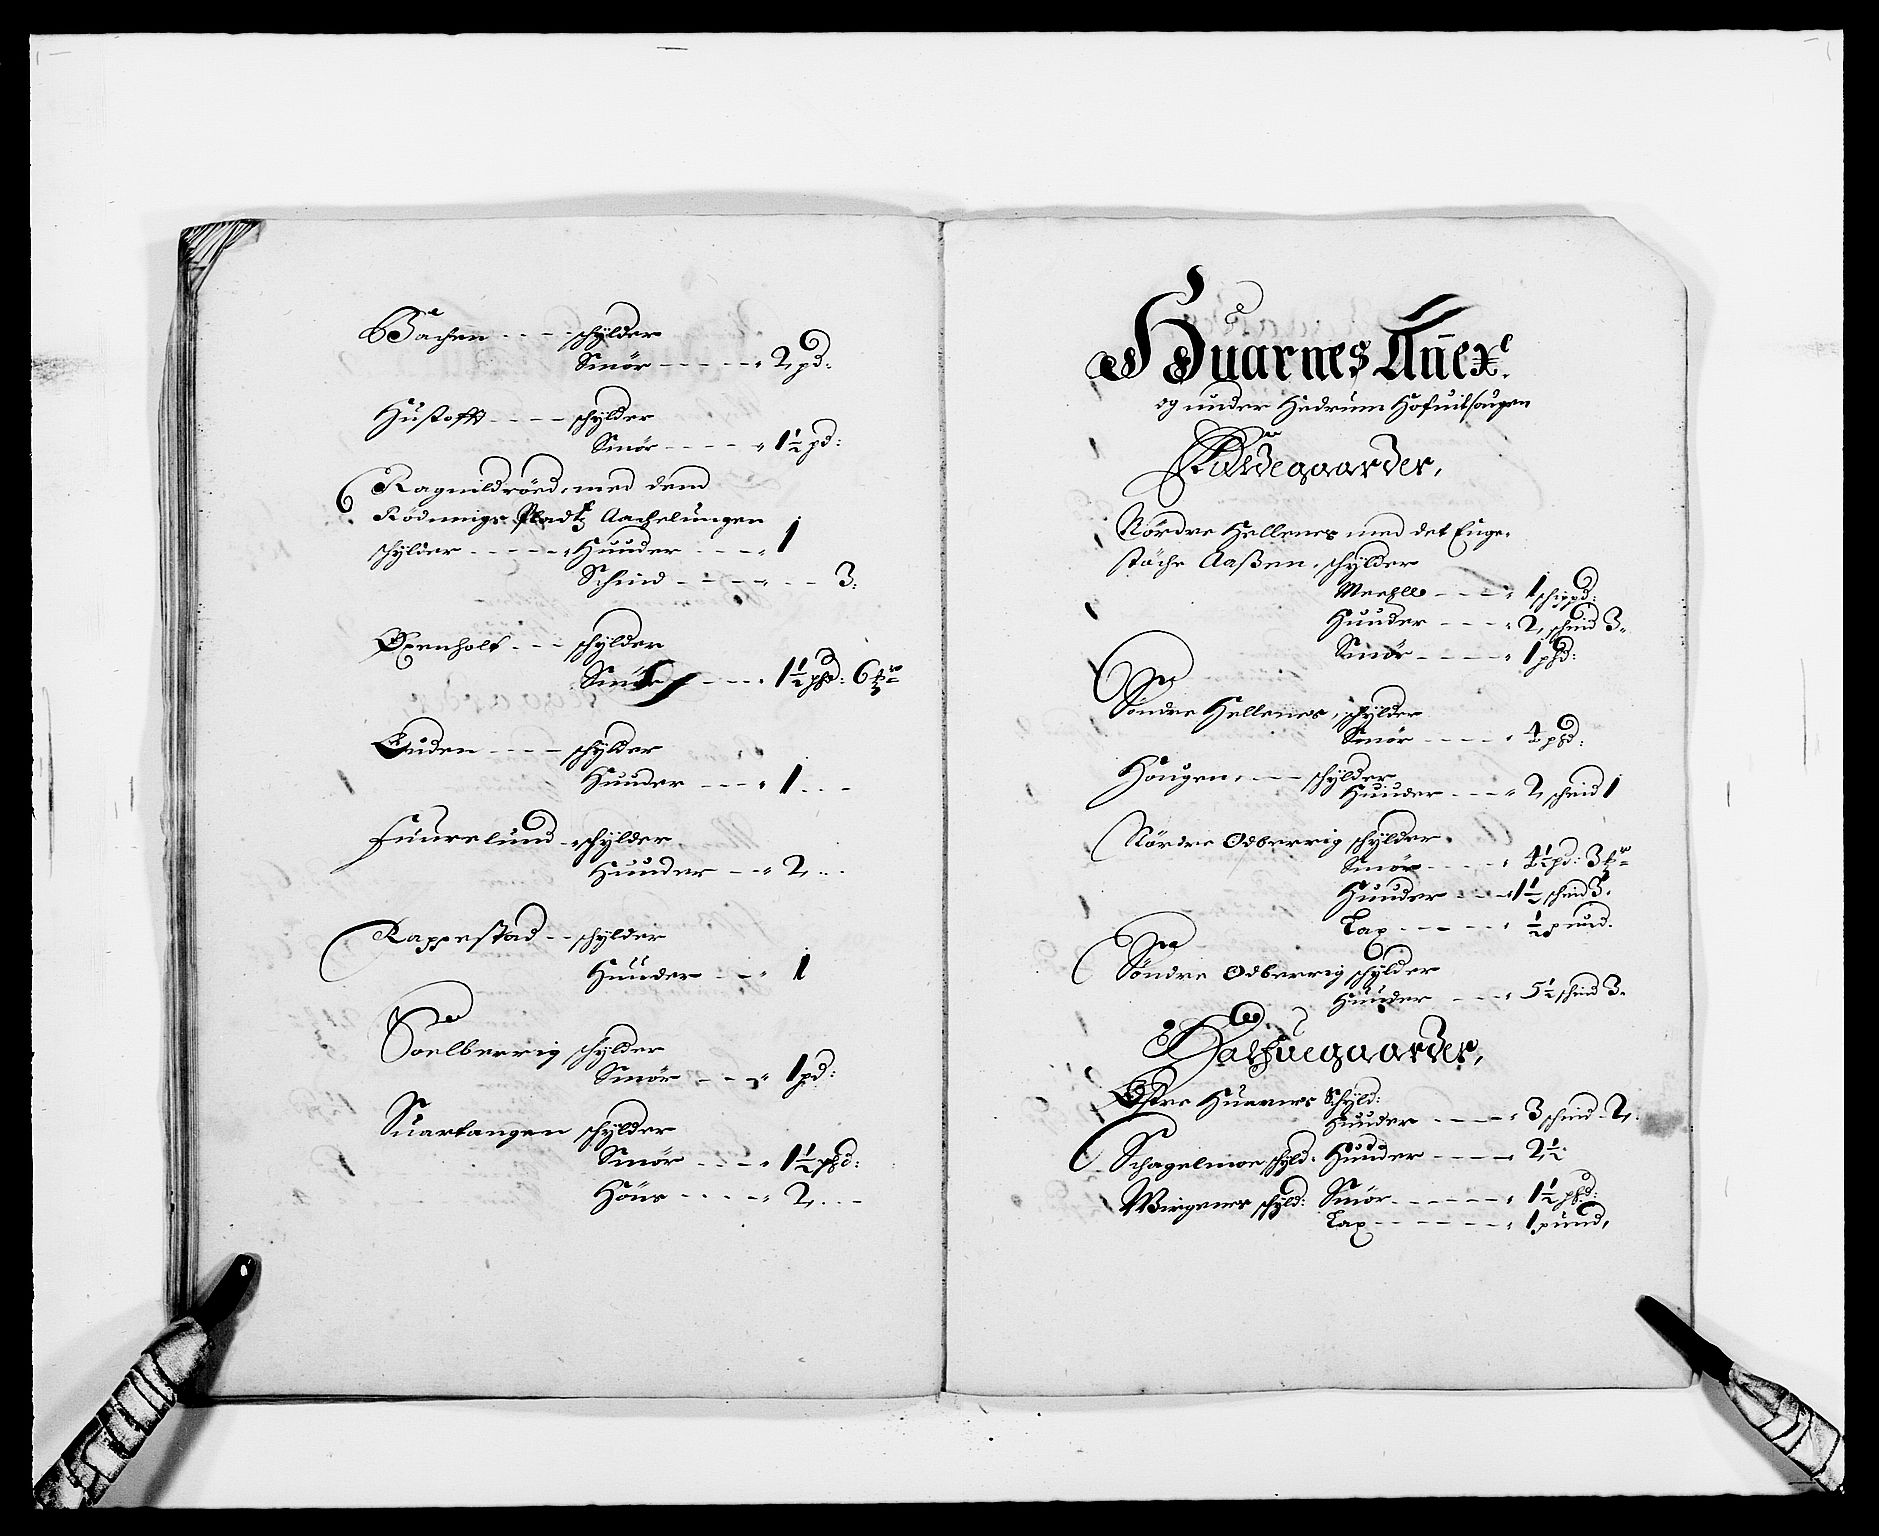 Bachen - - - schylder
Smør - - - - - 2 pd:
Hustofft - - - - schylder
Smør - - - - - 1½ pd:
Ragnildröed, med dem
Rödnings Pladtz Aachelungen
schylder - - - - - Huuder - - - - 1
Schind - - - - - - 3:
Øxenholt - - - schylder
Smör - - - - 1½ phd: 6
Enden - - - - schylder
Huuder - - - 1 . . -
Fuurelund - schylder
Huuder - - 2 . . -
Rappestad - - schylder
Huuder - - 1
Soelberrig schylder
Smör - - - 1 pd:
Suartangen schylder
Smör - - - - 1½ phd:
Höns - - - - - 2 . . -
Huarnes Añex
og under Hedrum Hofuitsougen
Fuldegaarder,
Nördre Hellenes med det Enge-
stöche Aaßen, schylder
Meehll - - - 1 schippd:
Huuder - - - - 2, schind 3-
Smör - - - - - 1 phd:
Söndre Hellenes, schylder
Smör - - - - - 4 phd:
Hougen, - - - schylder
Huuder - - - 2 schind 1
Nördre Odberrig schylder
Smör - - - - 4½ pd: 3
Huuder - - - 1½ schind 3.
Lax - - - - - ½ pund.
Söndre Odberrig schylder
Huuder - - - 5½ schind 3-
Halfuegaarder,
Østre Huarnes Schyld:
Huuder - - - - - 3 schind - 2,
Schagelmoe schyld: Huuder - - - - 2½
Wirgenes schyld: Smör - - - - - 1½ phd:
Lax - - - - - - 1 pund,